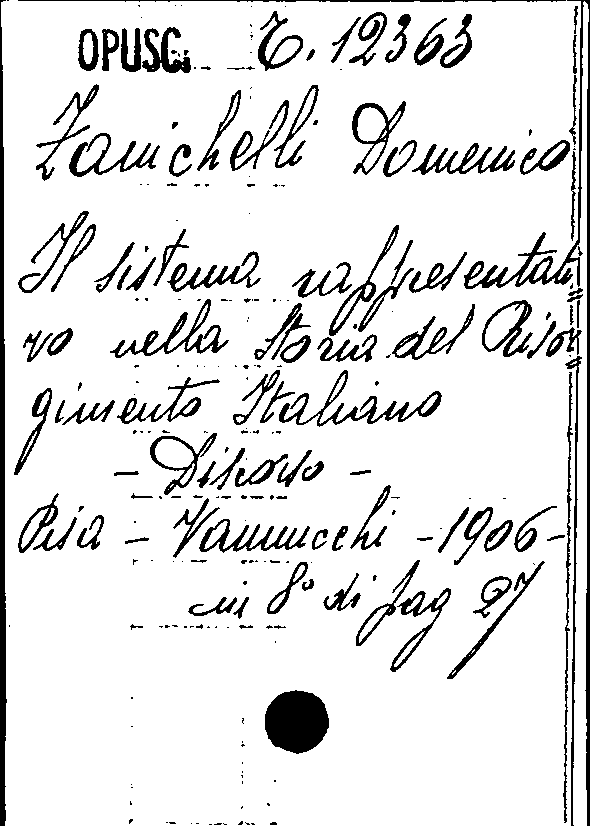 OPUSC. T. 12363
Zanichelli Domenico
Il sistema rappresentati=
vo nella Storia del Risor=
gimento Italiano
- Discorso -
Pisa - Vannucchi - 1906 -
in 8° di pag 27